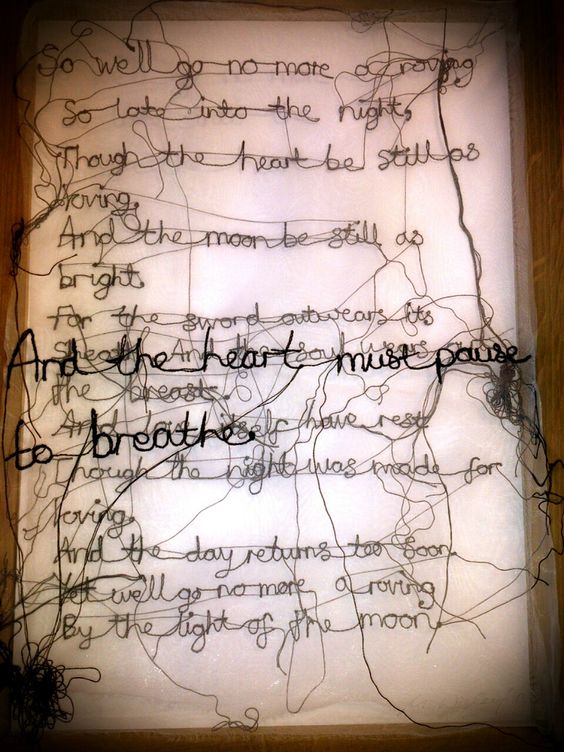 So we'll go no more a roving
So late into the night,
Though the heart be still as
roving,
And the moon be still as
bright.
For the sword outwears its
Sheath, And the soul wears
And the heart must pause
the breast.
And itself have rest
to breathe.
Though the night was made for
loving,
And the day returns too soon
Yet we'll go no more a roving
By the light of the moon.